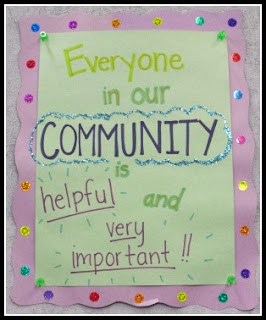 Everyone
in our
COMMUNITY
is
helpful and
very
important !!